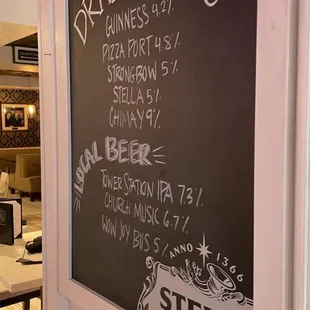 GUINNESS 4.2%
PIZZA PORT 4.8%
STRONGBOW 5%
STELLA 5%
CHIMAY 9%
LOCAL BEER
TOWER STATION IPA 7.3%
CHURCH MUSIC 6.7%
WOW JOY BUS 5%
ANNO 1366